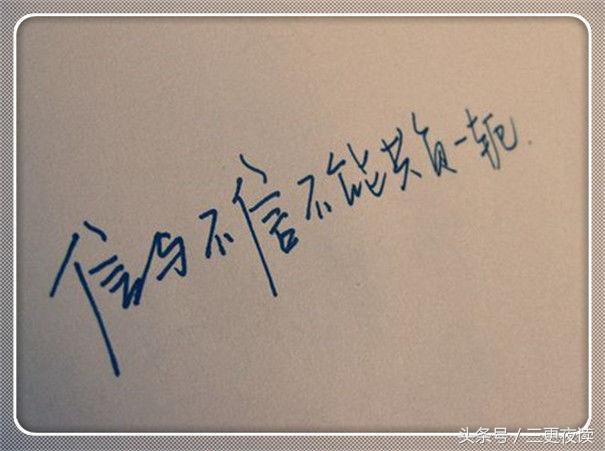 信与不信不能共负一轭.
头条号／三更夜读